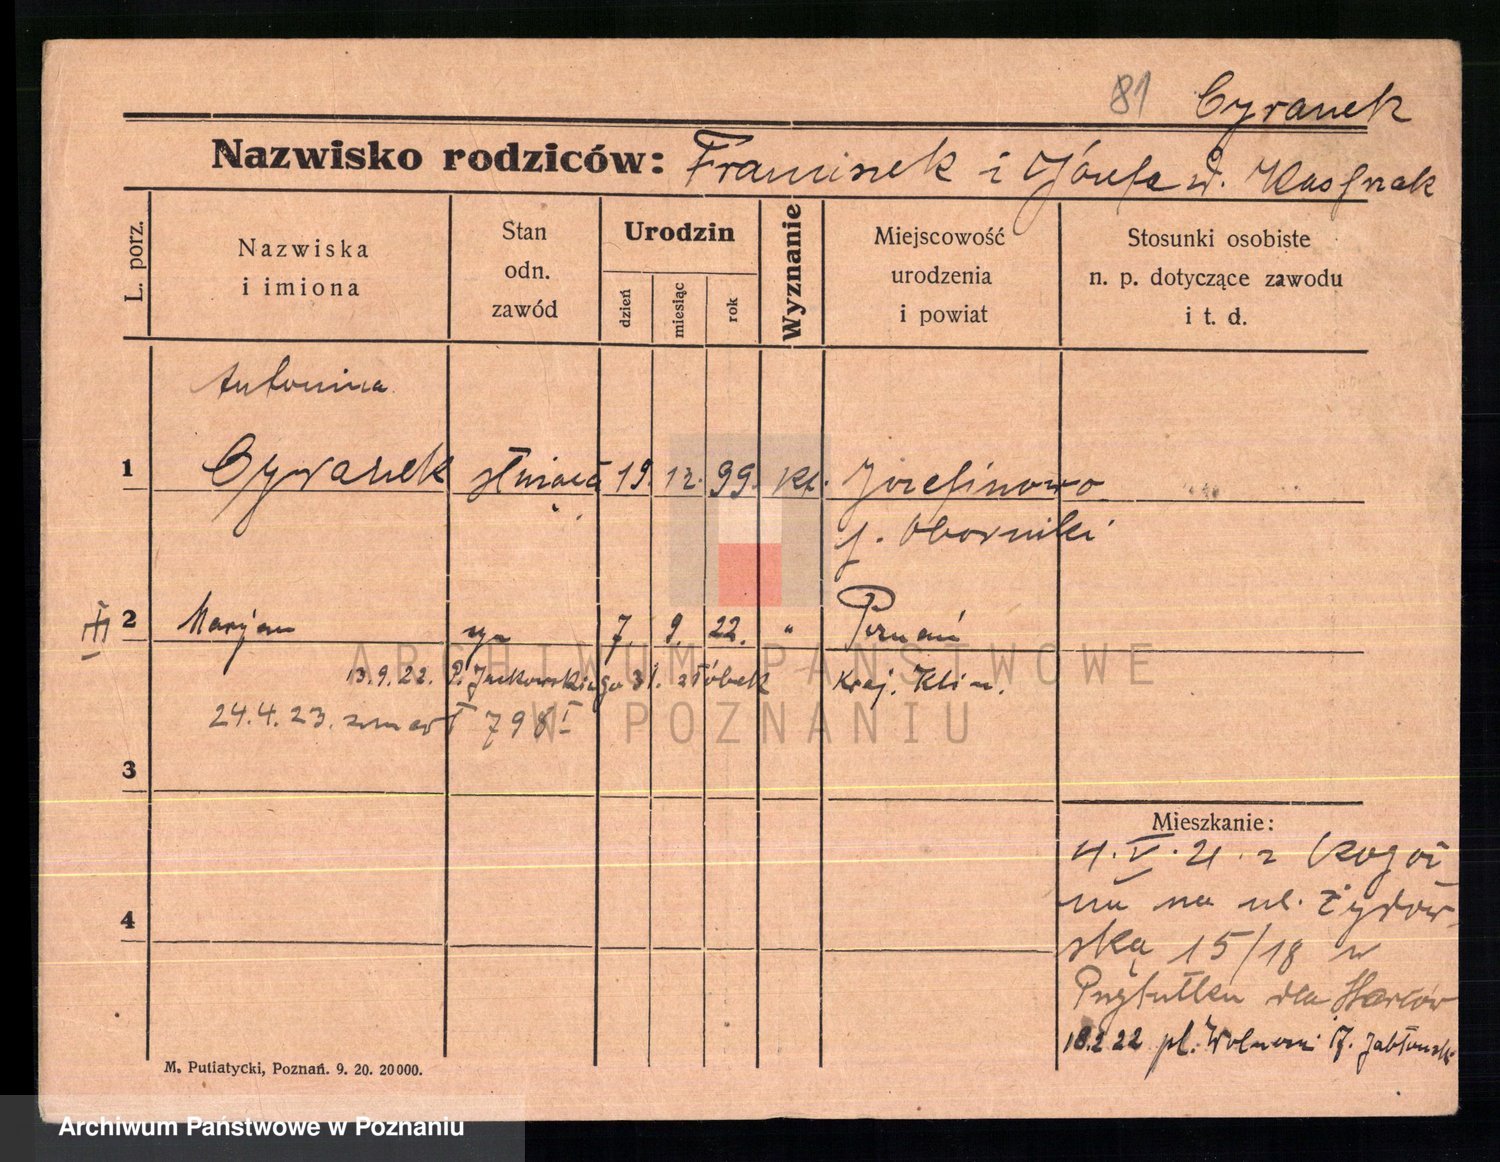 81 Cyranek
Nazwisko rodziców: Franciszek i Józefa
L. porz.
Nazwiska
i imiona
Stan
odn.
zawód
Urodzin
dzień
miesiąc
rok
Wyznanie
Miejscowość
urodzenia
i powiat
Stosunki osobiste
n. p. dotyczące zawodu
i t. d.
Antonina
1 Cyranek służąca 19. 12. 99. kt. Józefinowo
p. Oborniki
III 2 Marjan syn 7. 9. 22. " Poznań
13.9.22. P. Jackowskiego 31. żłóbek Kraj. Klin.
24.4.23. zmarł 798 I
3
Mieszkanie:
4.V.21. z Rogoź
na ul. Żydow-
4
ską 15/18 w
Przytułku dla Starców
18.2 22 pl. Wolności Jabłonski
M. Putiatycki, Poznań. 9. 20. 20000.
ARCHIWUM PAŃSTWOWE
W POZNANIU
Archiwum Państwowe w Poznaniu